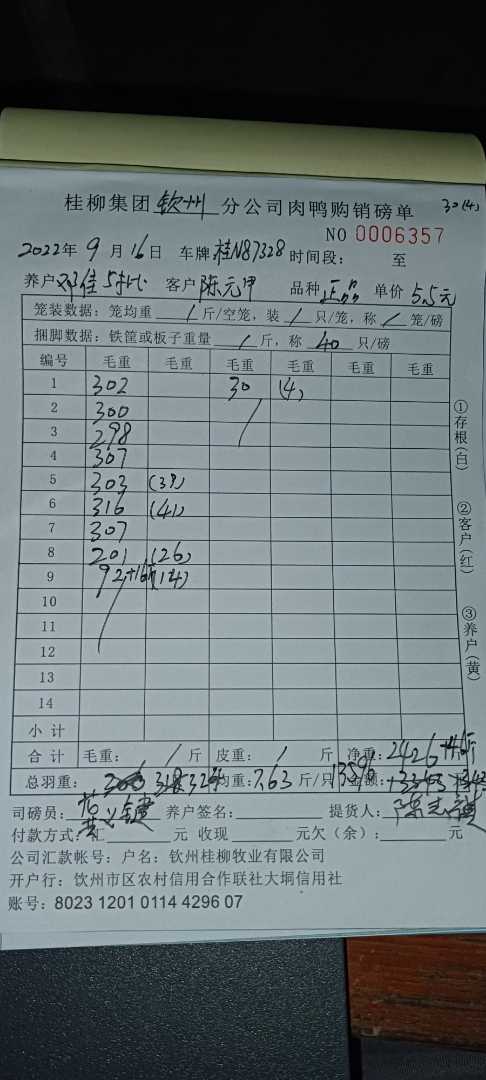 30(4)
桂柳集团 钦州 分公司肉鸭购销磅单
NO 0006357
2022年 9 月 16 日 车牌 桂N87328 时间段: 至
养户 佳 客户 陈元甲 品种 正品 单价 5.5元
笼装数据: 笼均重 / 斤/空笼, 装 / 只/笼, 称 / 笼/磅
捆脚数据: 铁筐或板子重量 / 斤, 称 40 只/磅
编号 毛重 毛重 毛重 毛重 毛重 毛重
1 302 30 (4)
2 300
3 298
4 307
5 303 (39)
6 316 (41)
7 307
8 201 (26)
9 92+16 (14)
10
11
12
13
14
小计
合计 毛重: / 斤 皮重: / 斤 净重: 2426
总羽重: 318 均重: 7.63 斤/只 金额:
司磅员: 养户签名: 提货人: 陈
付款方式: 汇 元 收现 元欠(余): 元
公司汇款帐号: 户名: 钦州桂柳牧业有限公司
开户行: 钦州市区农村信用合作联社大垌信用社
账号: 8023 1201 0114 4296 07
①存根(白)
②客户(红)
③养户(黄)